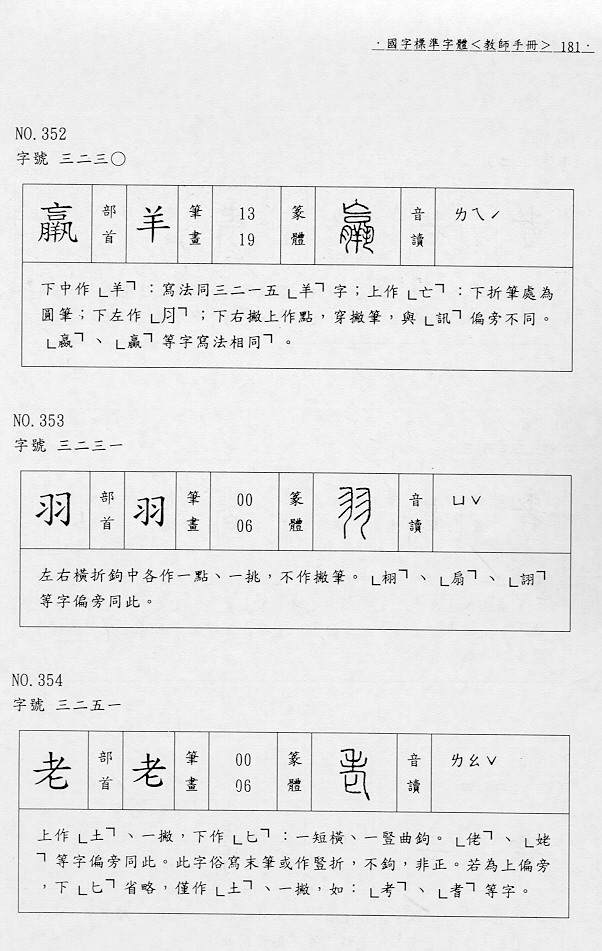 ·國字標準字體＜教師手冊＞ 181·
NO.352
字號 三二三〇
羸 部首 羊 筆畫 13 19 篆體 羸 音讀 ㄌㄟˊ
下中作「羊」：寫法同三二一五「羊」字；上作「亡」：下折筆處為
圓筆；下左作「月」；下右撇上作點，穿撇筆，與「訊」偏旁不同。
「嬴」、「贏」等字寫法相同」。
NO.353
字號 三二三一
羽 部首 羽 筆畫 00 06 篆體 羽 音讀 ㄩˇ
左右橫折鉤中各作一點、一挑，不作撇筆。「栩」、「扇」、「詡」
等字偏旁同此。
NO.354
字號 三二五一
老 部首 老 筆畫 00 06 篆體 老 音讀 ㄌㄠˇ
上作「土」、一撇，下作「匕」：一短橫、一豎曲鉤。「佬」、「姥
」等字偏旁同此。此字俗寫末筆或作豎折，不鉤，非正。若為上偏旁
，下「匕」省略，僅作「土」、一撇，如：「考」、「耆」等字。